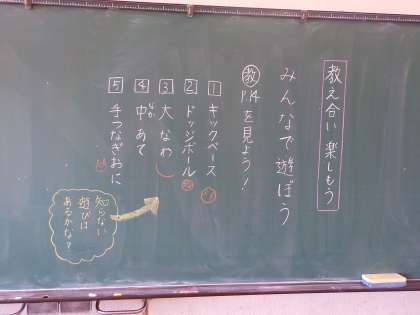 教え合い 楽しもう
みんなで遊ぼう
教 P.14を見よう!
1 キックベース
2 ドッジボール
3 大なわ
4 中あて
なか
5 手つなぎおに
知らない
遊びは
あるかな?